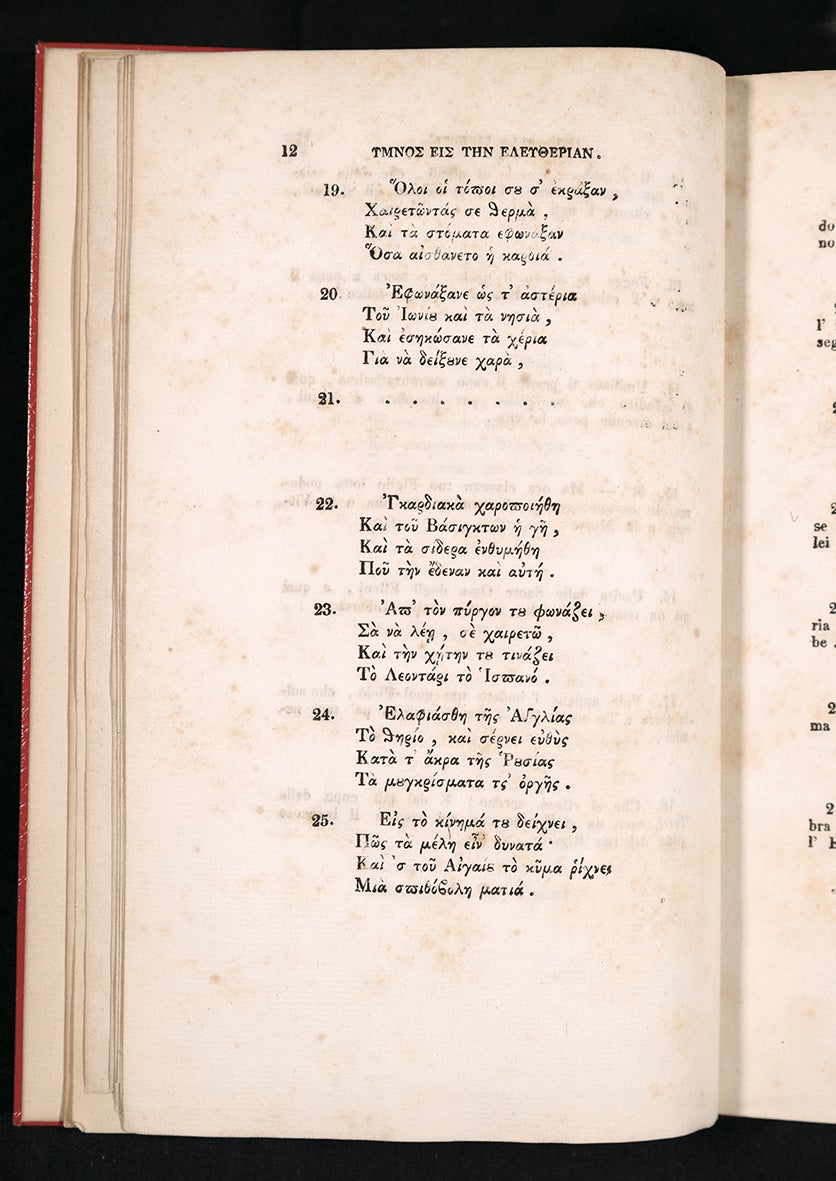 12 ΥΜΝΟΣ ΕΙΣ ΤΗΝ ΕΛΕΥΘΕΡΙΑΝ.
19. Ὅλοι οἱ τόϖοι σȣ σ' ἐκράξαν,
Χαιρετῶντάς σε ϑερμὰ,
Καὶ τὰ στόματα εφωναξαν
Ὅσα αἰσθανετο ἡ καρδιά.
20. Ἐφωνάξανε ὡς τ' ἀστέρια
Τοῦ Ἰωνίȣ καὶ τὰ νησιὰ,
Καὶ ἐσηκώσανε τὰ χέρια
Γιὰ νὰ δείξȣνε χαρὰ,
21. . . . . . . .
22. Ἐγκαρδιακὰ χαροϖοιήθη
Καὶ τοῦ Βάσιγκτων ἡ γῆ,
Καὶ τὰ σίδερα ἐνθυμήθη
Ποῦ τὴν ἔδεναν καὶ αὐτή.
23. Ἀϖ' τὸν πύργον τȣ φωνάζει,
Σὰ νὰ λέῃ, σὲ χαιρετῶ,
Καὶ τὴν χήτην τȣ τινάζει
Τὸ Λεοντάρι τὸ Ἱσϖανό.
24. Ἐλαφιάσθη τῆς Ἀγγλίας
Τὸ ϑηρίο, καὶ σέρνει εὐθὺς
Κατὰ τ' ἄκρα τῆς Ῥȣσίας
Τὰ μȣγκρίσματα τς' ὀργῆς.
25. Εἰς τὸ κίνημά τȣ δείχνει,
Πῶς τὰ μέλη εἶν' δυνατά·
Καὶ 'σ τοῦ Αἰγαίȣ τὸ κῦμα ῥίχνει
Μιὰ σϖιθόϐολη ματιά.
do
no
l'
seg
2
se
lei
2
ria
be.
2
ma
2
bra
l'